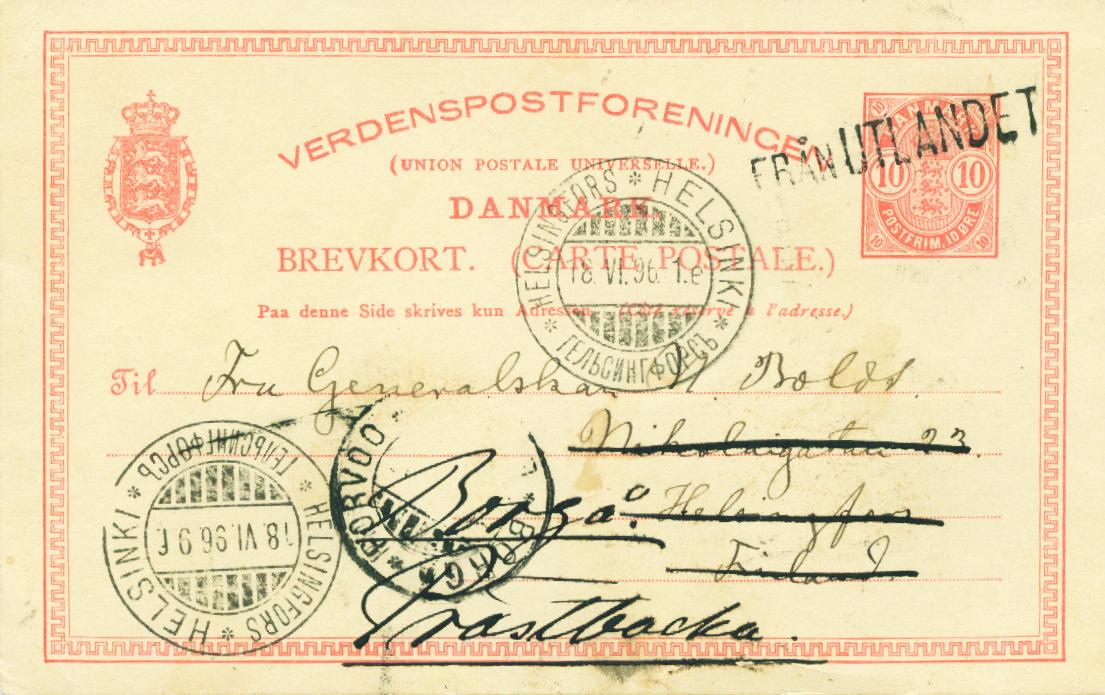 VERDENSPOSTFORENINGEN
(UNION POSTALE UNIVERSELLE.)
DANMARK.
BREVKORT. (CARTE POSTALE.)
Paa denne Side skrives kun Adressen. (Côté réservé à l'adresse.)
DANMARK
10 10 10 10
10 10
POSTFRIM. 10 ØRE
FRÅN UTLANDET
HELSINGFORS * HELSINKI * ГЕЛЬСИНГФОРСЪ *
18. VI. 96. 1. e
Til Fru Generalskan
Nikolaigatan 23
Helsingfors
Finland.
Borgå.
Träskbacka.
PORVOO * BORGÅ *
HELSINKI * ГЕЛЬСИНГФОРСЪ * HELSINGFORS *
18 VI 96 9 f